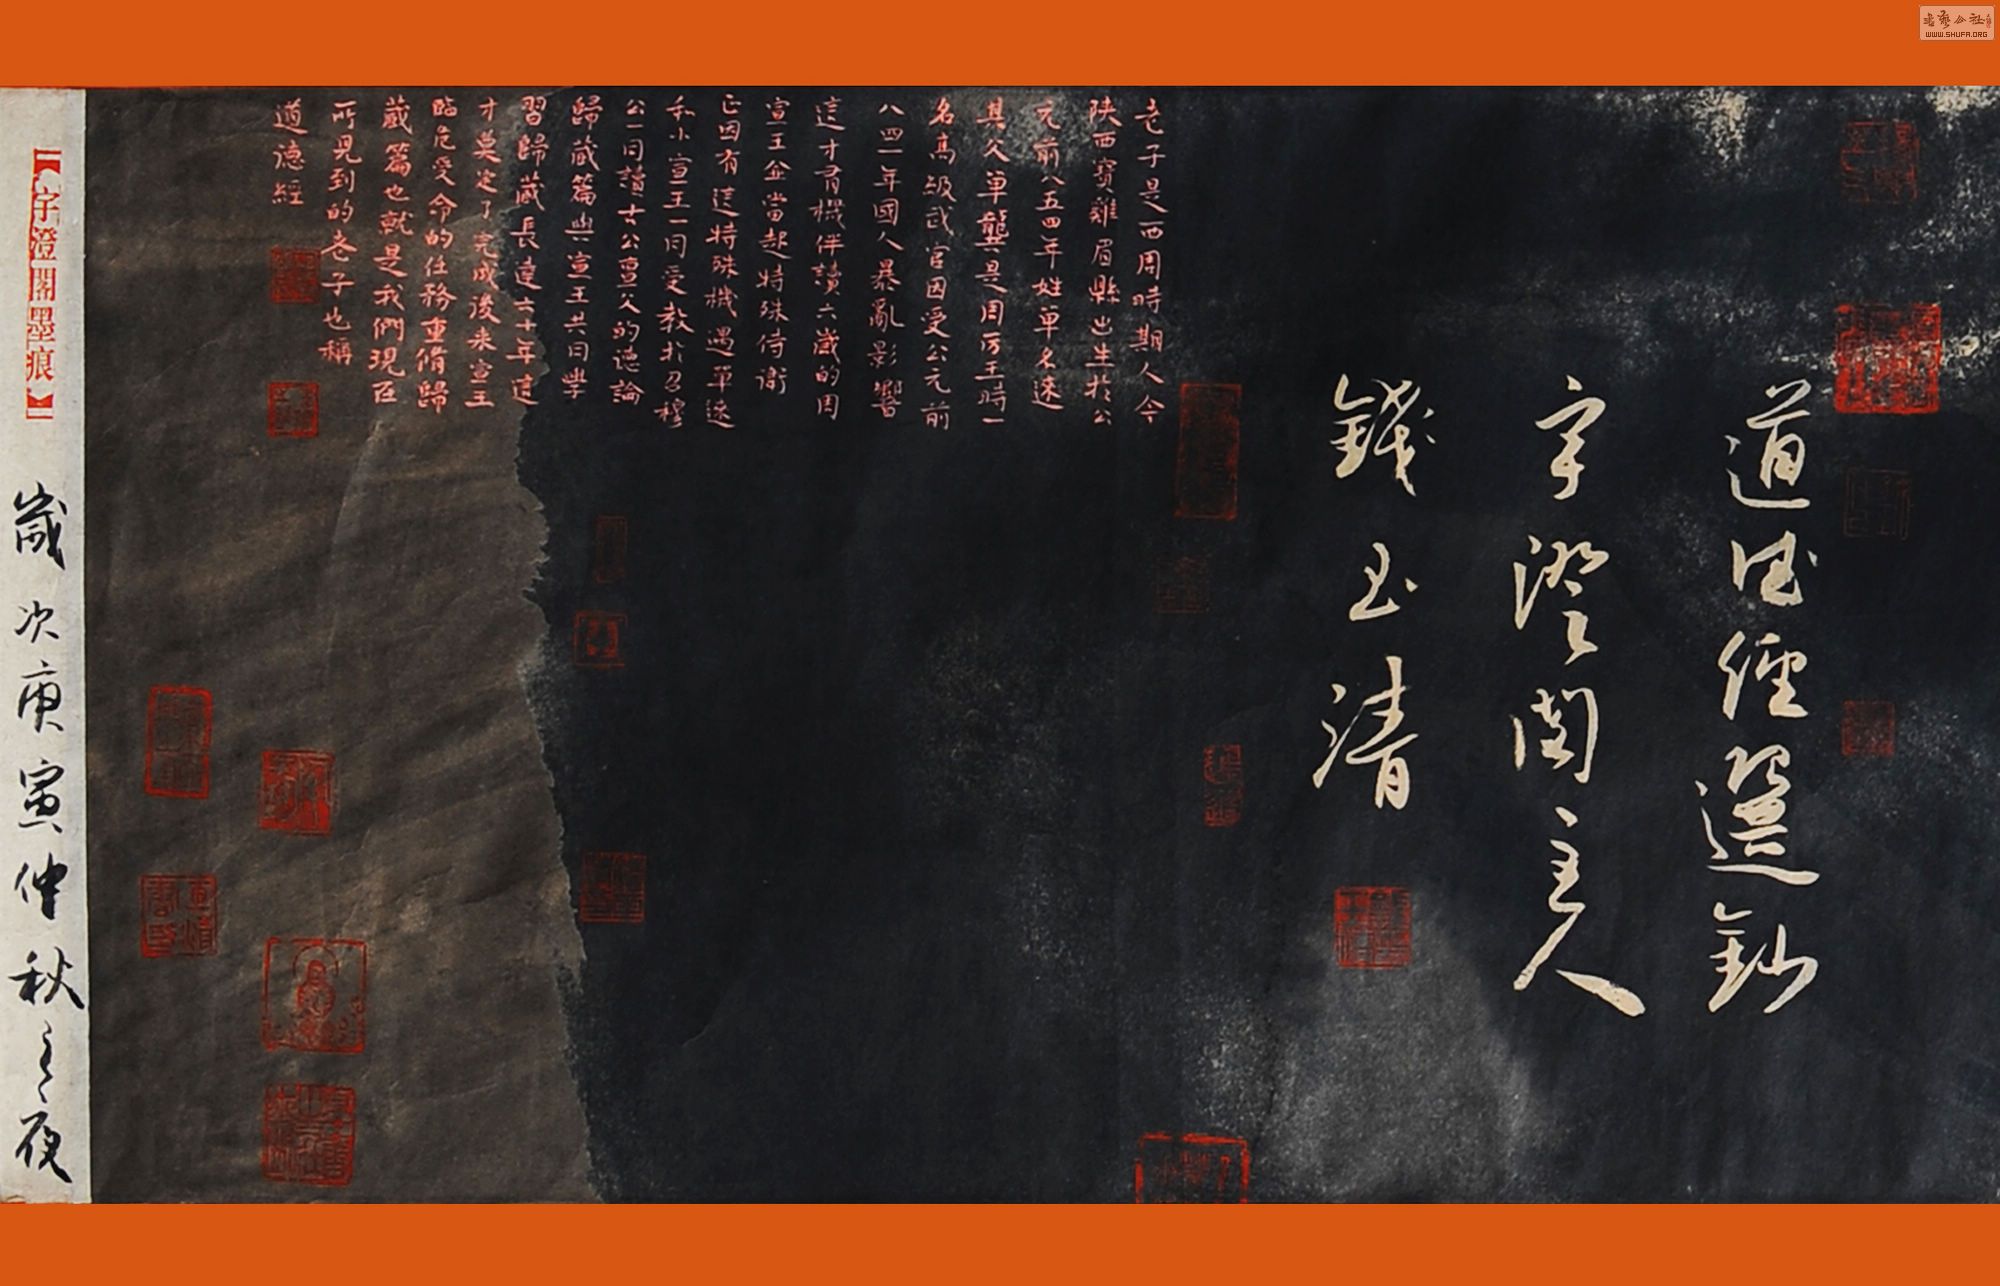 道德經選鈔
宇澄閣主人
錢玉清
老子是西周時期人今
陝西寶雞眉縣出生於公
元前八五四年姓單名逨
其父單龔是周厉王時一
名高級武官因受公元前
八四一年國人暴亂影響
這才有機伴讀六歲的周
宣王並當起特殊侍衛
正因有這特殊機遇單逨
和小宣王一同受教於召穆
公一同讀古公亶父的德論
歸藏篇與宣王共同學
習歸藏長達六十年這
才奠定了完成後来宣王
臨危受命的任務重脩歸
藏篇也就是我們現在
所見到的老子也稱
道德經
【宇澄閣墨痕】
歲次庚寅仲秋之夜
書藝公社
WWW.SHUFA.ORG